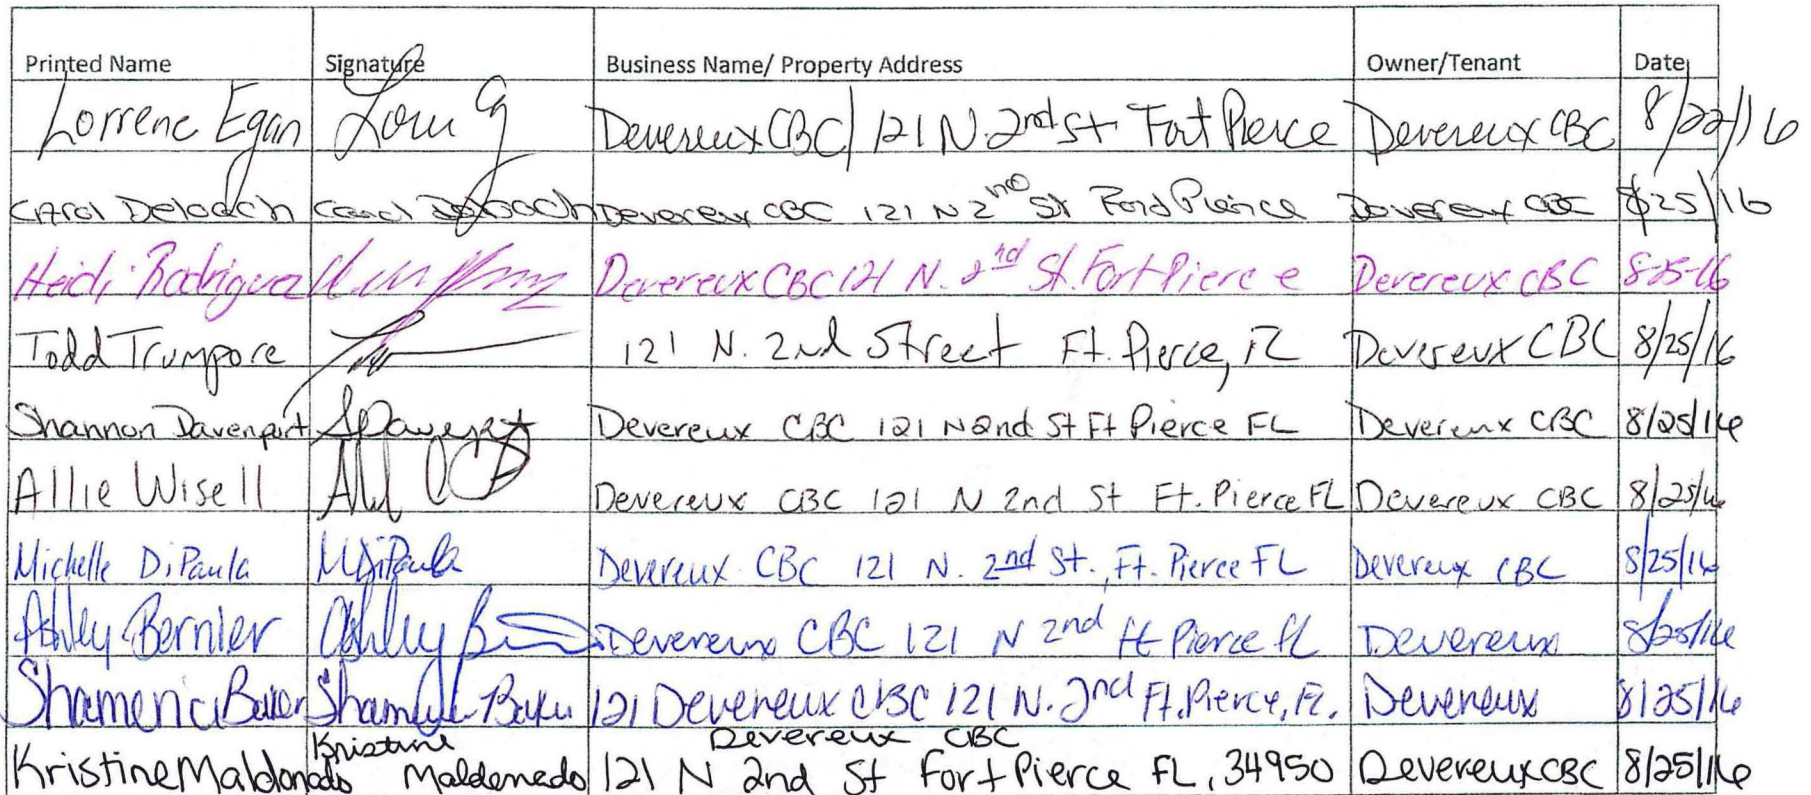 Printed Name Signature Business Name/ Property Address Owner/Tenant Date
Lorrene Egan Devereux CBC/ 121 N. 2nd St Fort Pierce Devereux CBC 8/22/16
CArol Deloach Carol Deloach Devereux CBC 121 N 2nd St Ford Pierce Devereux CBC 8/25/16
Heidi Rodriguez Devereux CBC 121 N. 2nd St. Fort Pierce Devereux CBC 8-25-16
Todd Trumpore 121 N. 2nd Street Ft. Pierce, FL Devereux CBC 8/25/16
Shannon Davenport SDavenport Devereux CBC 121 N 2nd St Ft Pierce FL Devereux CBC 8/25/16
Allie Wisell Devereux CBC 121 N 2nd St Ft. Pierce FL Devereux CBC 8/25/16
Michelle DiPaula MDiPaula Devereux CBC 121 N. 2nd St., Ft. Pierce FL Devereux CBC 8/25/16
Ashley Bernier Ashley Devereux CBC 121 N 2nd ft Pierce fl Devereux 8/25/16
Baker 121 Devereux CBC 121 N. 2nd Ft. Pierce, FL. Devereux 8/25/16
Kristine Devereux CBC
Kristine Maldonado Maldonado 121 N 2nd St Fort Pierce FL, 34950 Devereux CBC 8/25/16